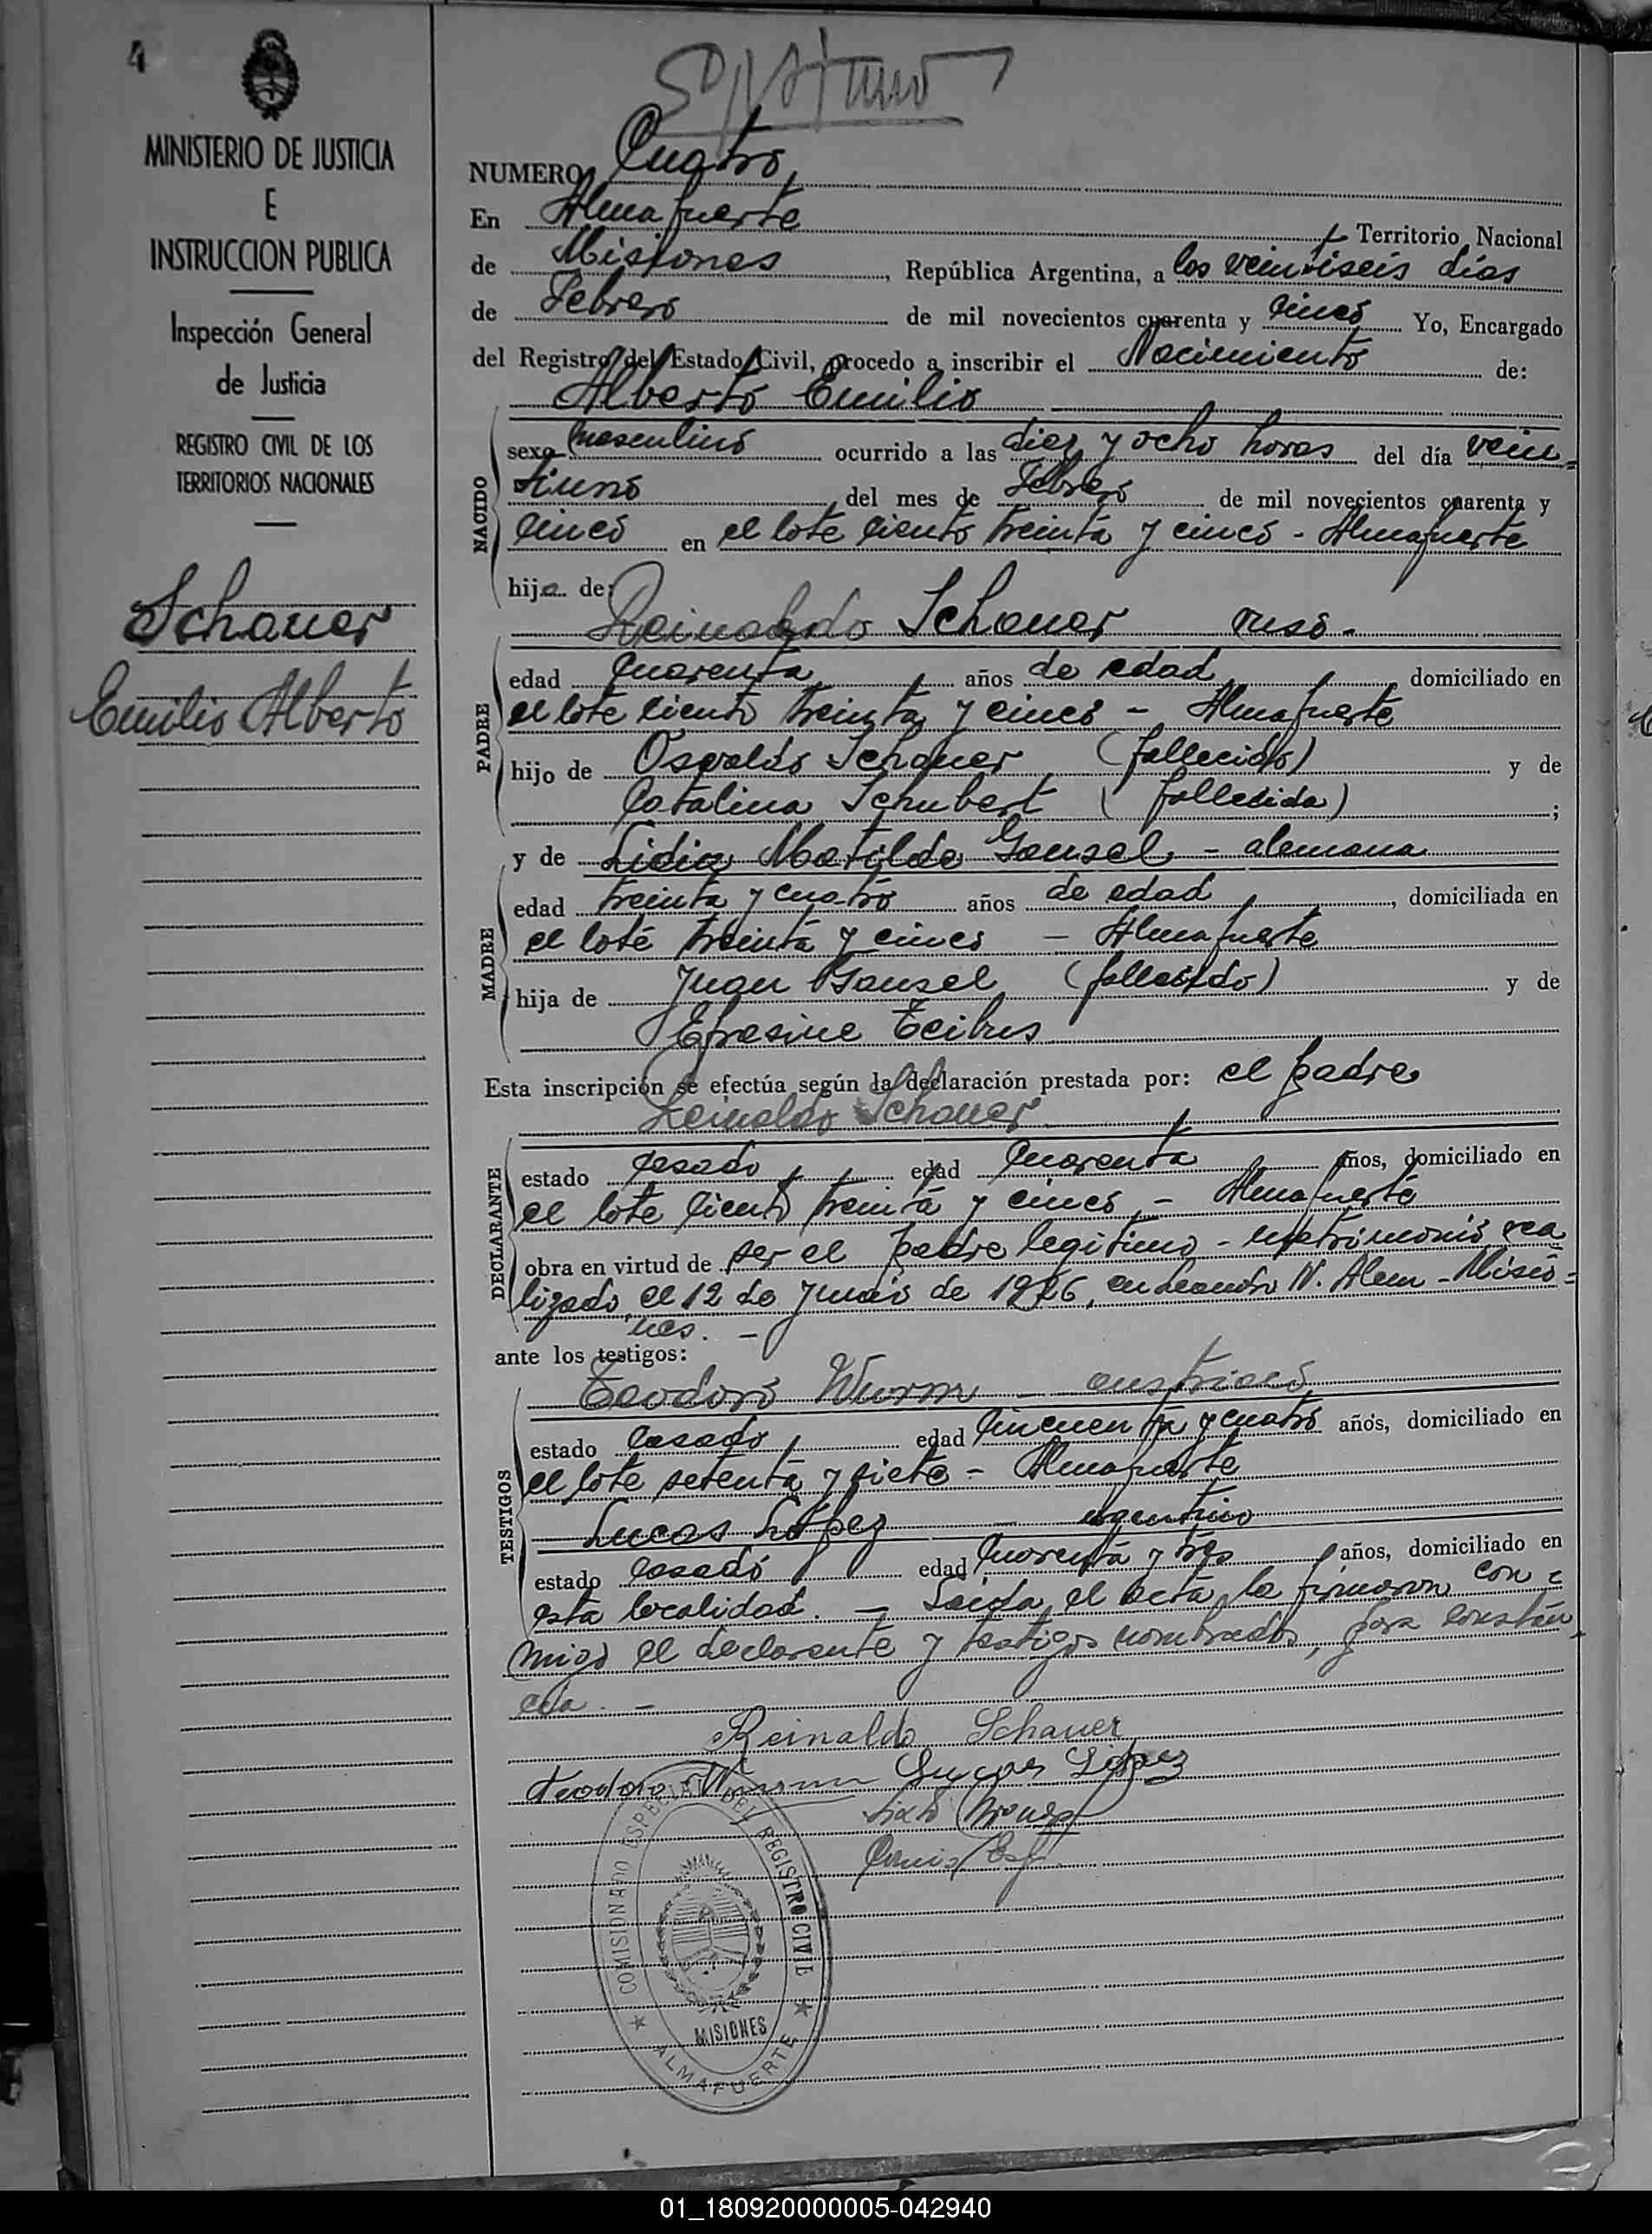 4
MINISTERIO DE JUSTICIA
E
INSTRUCCION PUBLICA
Inspección General
de Justicia
REGISTRO CIVIL DE LOS
TERRITORIOS NACIONALES
Schauer
Emilio Alberto
NUMERO Cuatro
En Almafuerte Territorio Nacional
de Misiones, República Argentina, a los veintiseis días
de Febrero de mil novecientos cuarenta y cinco Yo, Encargado
del Registro del Estado Civil, procedo a inscribir el Nacimiento de:
Alberto Emilio
NACIDO
sexo masculino ocurrido a las diez y ocho horas del día vein=
tiuno del mes de Febrero de mil novecientos cuarenta y
cinco en el lote ciento treinta y cinco - Almafuerte
hijo de:
Reinaldo Schauer ruso.
PADRE
edad cuarenta años de edad, domiciliado en
el lote ciento treinta y cinco - Almafuerte
hijo de Osvaldo Schauer (fallecido) y de
Catalina Schubert (fallecida) ;
y de Lidia Matilde Gansel - alemana
MADRE
edad treinta y cuatro años de edad, domiciliada en
el lote treinta y cinco - Almafuerte
hija de Juan Gansel (fallecido) y de
Efrasine
Esta inscripción se efectúa según la declaración prestada por: el padre
Reinaldo Schauer
DECLARANTE
estado casado edad cuarenta años, domiciliado en
el lote ciento treinta y cinco, - Almafuerte
obra en virtud de ser el padre legitimo - matrimonio rea
lizado el 12 de de en Leandro N. Alem - Misio=
nes. -
ante los testigos:
TESTIGOS
Teodoro Wurm - austriaco
estado casado, edad cincuenta y cuatro años, domiciliado en
el lote setenta y siete - Almafuerte
Lucas López - argentino
estado casado edad cuarenta y tres años, domiciliado en
esta localidad. - Leida el acta, la firmaron con=
migo el declarante y testigos nombrados, para constan=
cia. -
Reinaldo Schauer
Teodoro Wurm Lucas López
COMISIONADO ESPECIAL DEL REGISTRO CIVIL
MISIONES
ALMAFUERTE
01_180920000005-042940